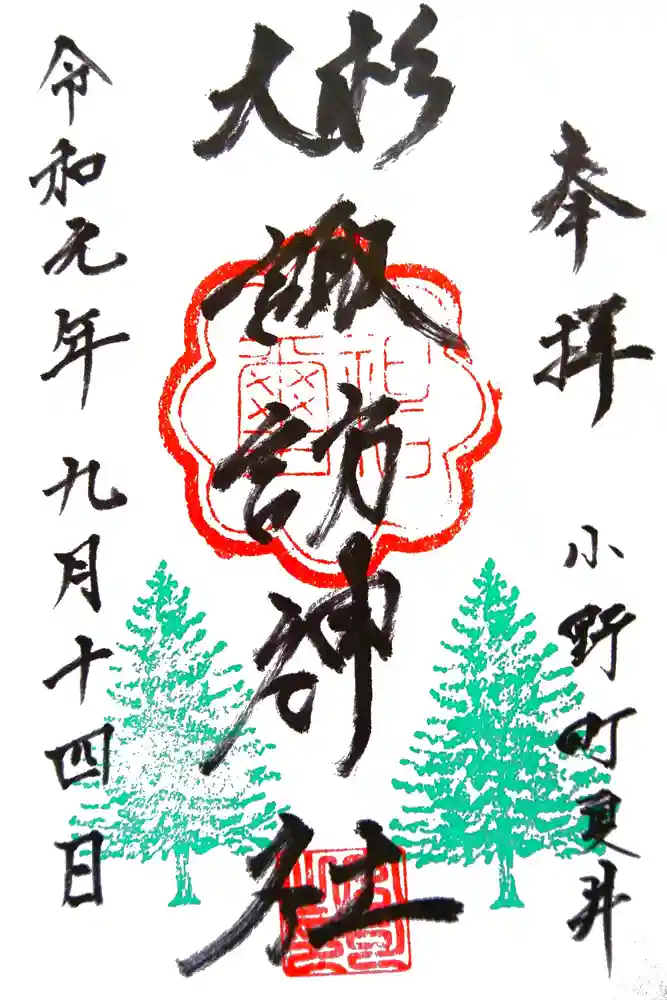 奉拝
小野町夏井
大杉
諏訪神社
令和元年 九月十四日